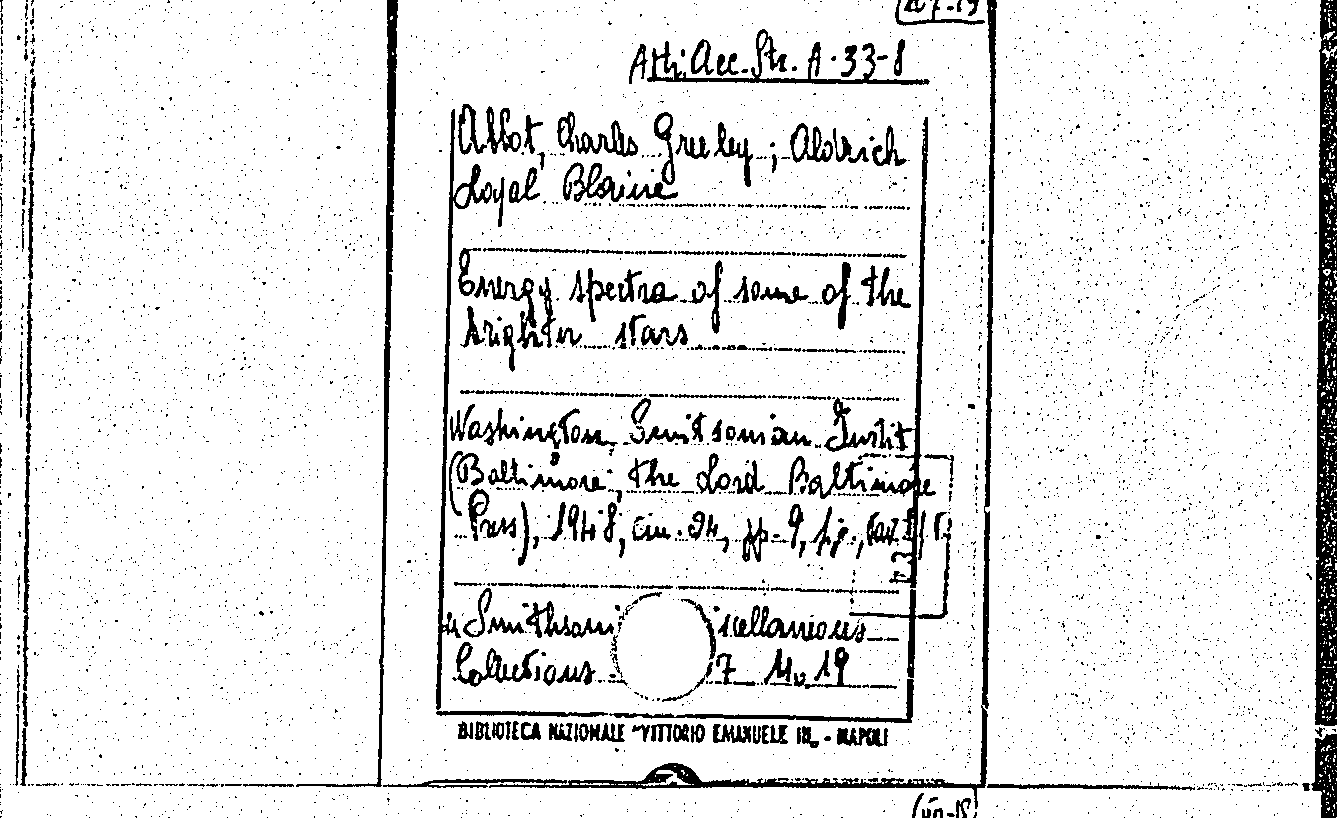 Atti. Acc. Str. A-33-8
Abbot, Charles Greeley ; Aldrich
Loyal Blaine
Energy spectra of some of the
brighter stars
Washington, Smitsonian Instit
(Baltimore, the Lord Baltimore
Press), 1948, cm. 24, pp. 9, fig., tav.
Smithsoni scellaneous
Collections 7 No 19
BIBLIOTECA NAZIONALE "VITTORIO EMANUELE III" - NAPOLI